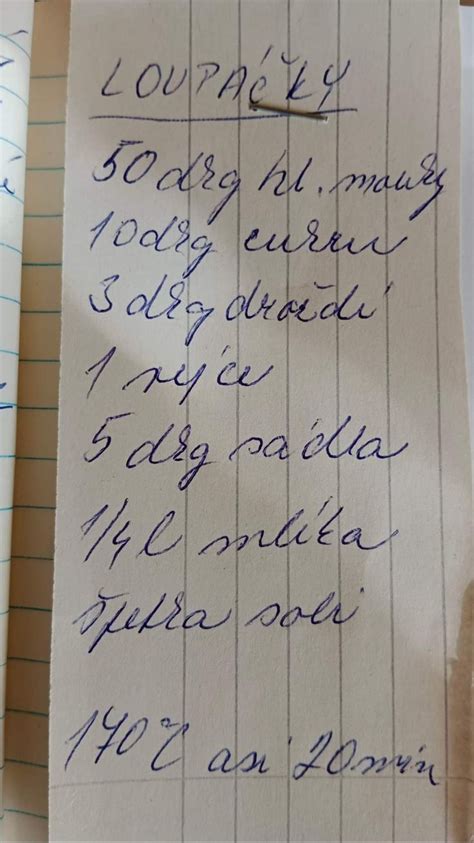 LOUPÁČKY
50 dkg hl. mouky
10 dkg cukru
3 dkg droždí
1 vejce
5 dkg sádla
1/4 l mlíka
špetka soli
170°C asi 20 min